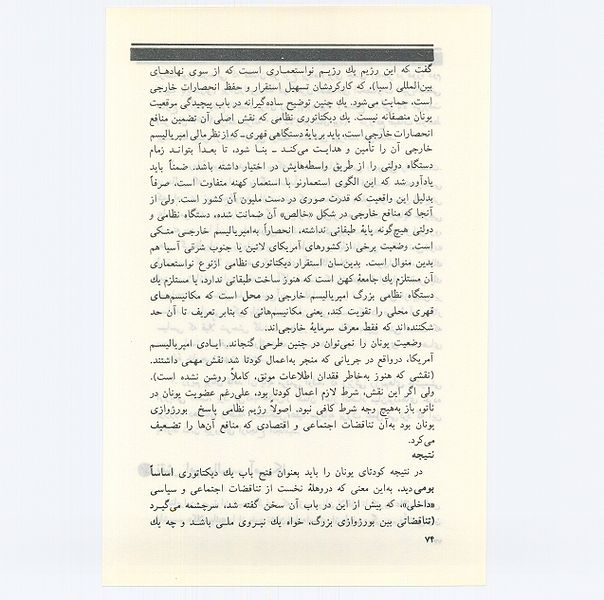 گفت که این رژیم یك رژیم نواستعماری است که از سوی نهادهای
بین‌المللی (سیا)، که کارکردشان تسهیل استقرار و حفظ انحصارات خارجی
است، حمایت می‌شود. یك چنین توضیح ساده‌گیرانه در باب پیچیدگی موقعیت
یونان منصفانه نیست. یك دیکتاتوری نظامی که نقش اصلی آن تضمین منافع
انحصارات خارجی است، باید بر پایهٔ دستگاهی قهری ـ که از نظر مالی امپریالیسم
خارجی آن را تأمین و هدایت می‌کند ـ بنا شود، تا بعداً بتواند زمام
دستگاه دولتی را از طریق واسطه‌هایش در اختیار داشته باشد. ضمناً باید
یادآور شد که این الگوی استعمارنو با استعمار کهنه متفاوت است، صرفاً
بدلیل این واقعیت که قدرت صوری در دست ملیون آن کشور است. ولی از
آنجا که منافع خارجی در شکل «خالص» آن ضمانت شده، دستگاه نظامی و
دولتی هیچ‌گونه پایهٔ طبقاتی نداشته، انحصاراً به‌امپریالیسم خارجی متکی
است. وضعیت برخی از کشورهای آمریکای لاتین یا جنوب شرقی آسیا هم
بدین منوال است. بدین‌سان استقرار دیکتاتوری نظامی ازنوع نواستعماری
آن مستلزم یك جامعهٔ کهن است که هنوز ساخت طبقاتی ندارد، یا مستلزم یك
دستگاه نظامی بزرگ امپریالیسم خارجی در محل است که مکانیسم‌های
قهری محلی را تقویت کند، یعنی مکانیسم‌هائی که بنابر تعریف تا آن حد
شکننده‌اند که فقط معرف سرمایهٔ خارجی‌اند.
وضعیت یونان را نمی‌توان در چنین طرحی گنجاند. ایادی امپریالیسم
آمریکا، درواقع در جریانی که منجر به‌اعمال کودتا شد نقش مهمی داشتند.
(نقشی که هنوز به‌خاطر فقدان اطلاعات موثق، کاملاً روشن نشده است).
ولی اگر این نقش، شرط لازم اعمال کودتا بود، علی‌رغم عضویت یونان در
ناتو، باز به‌هیچ وجه شرط کافی نبود. اصولاً رژیم نظامی پاسخ بورژوازی
یونان بود به‌آن تناقضات اجتماعی و اقتصادی که منافع آن‌ها را تضعیف
می‌کرد.
نتیجه
در نتیجه کودتای یونان را باید بعنوان فتح باب یك دیکتاتوری اساساً
بومی دید، به‌این معنی که دروهلهٔ نخست از تناقضات اجتماعی و سیاسی
«داخلی»، که پیش از این در باب آن سخن گفته شد، سرچشمه می‌گیرد
(تناقضاتی بین بورژوازی بزرگ، خواه یك نیروی ملی باشد و چه یك
۷۴